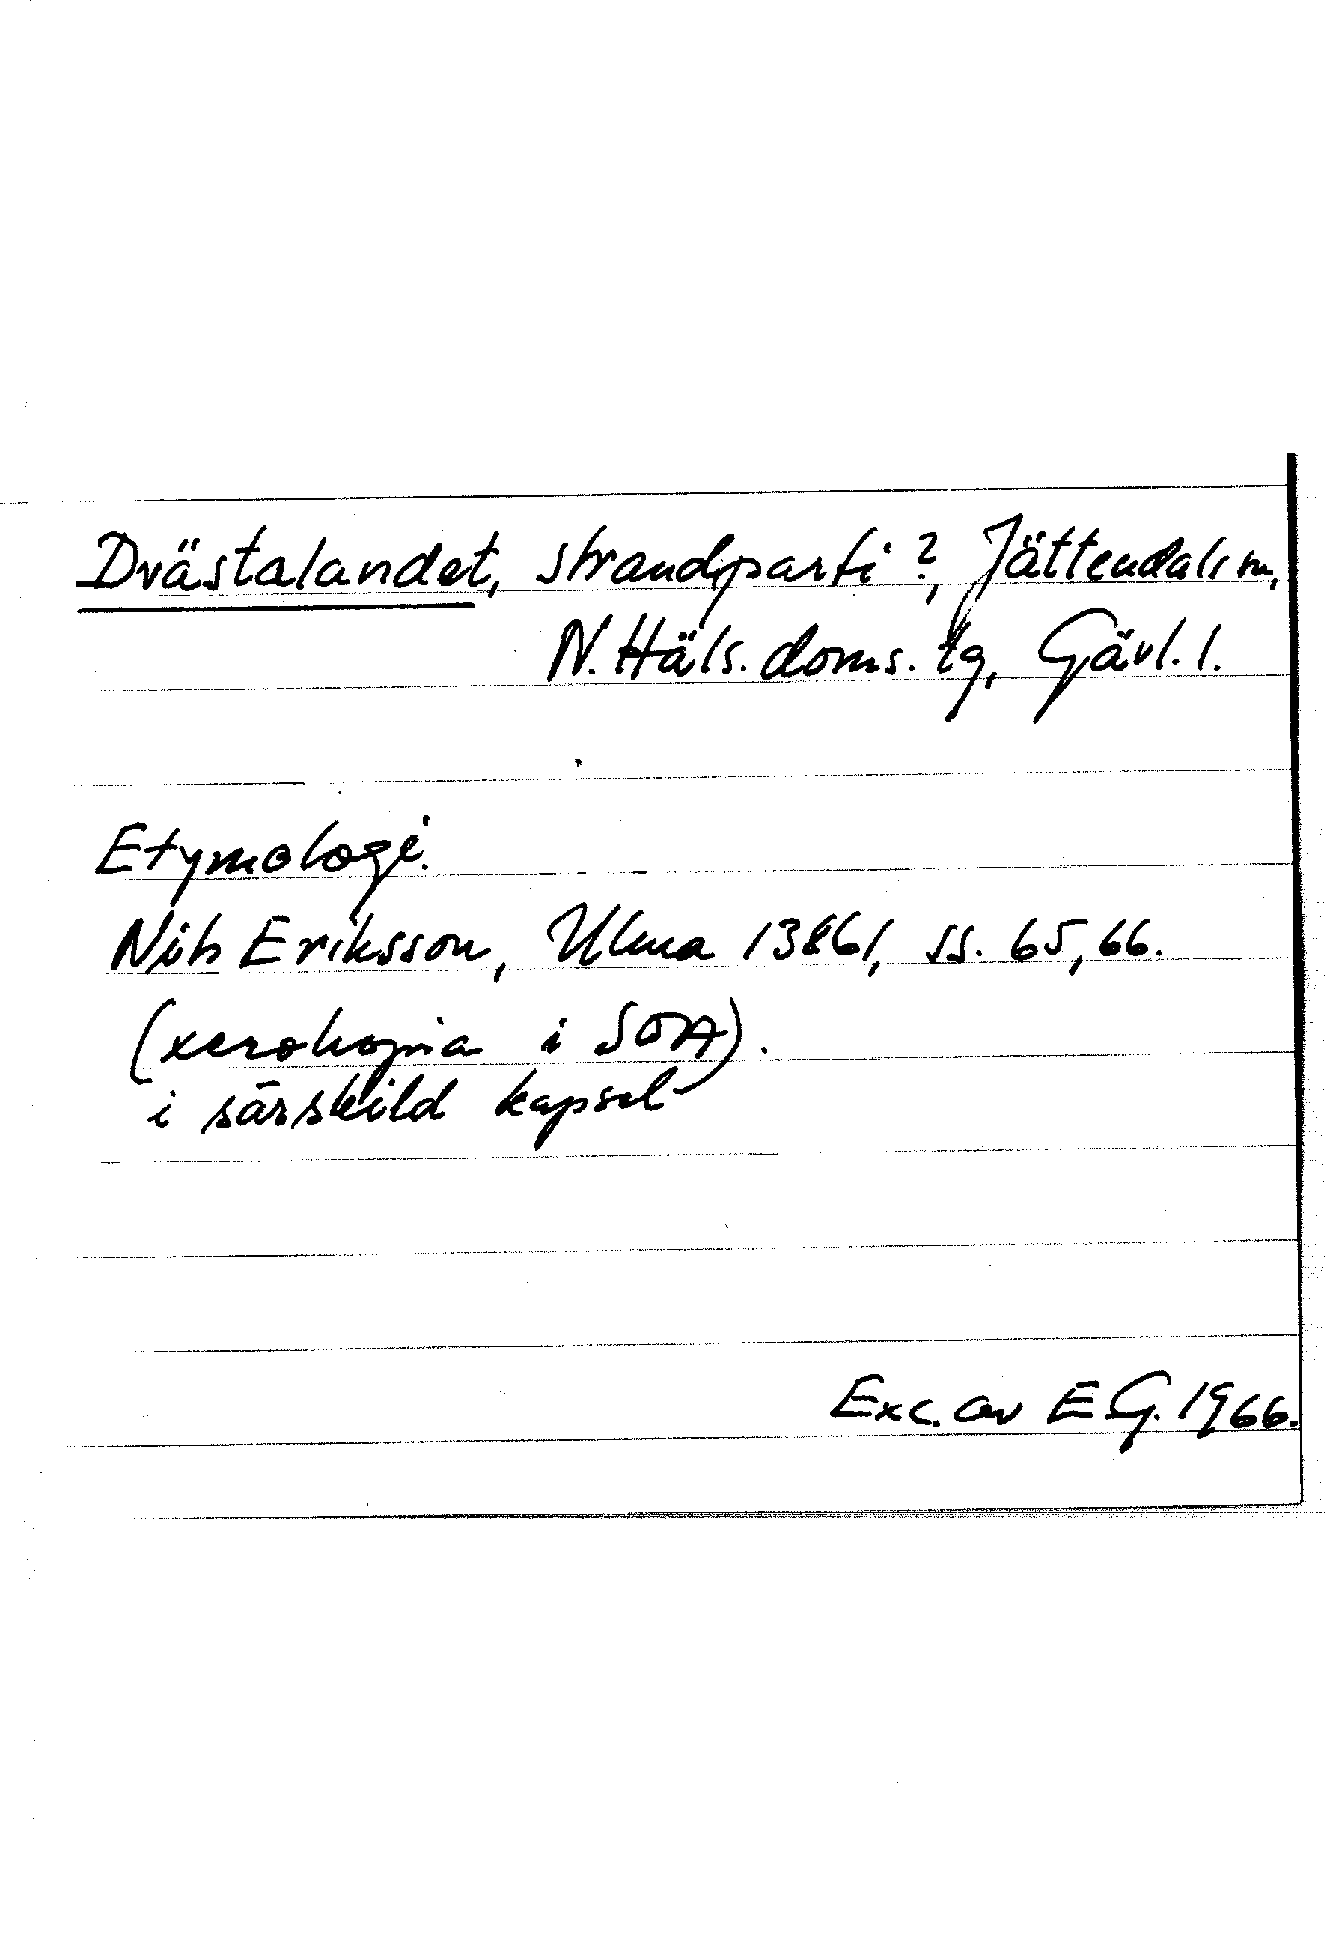 Dvästalandet, strandparti?, Jättendals sn,
N. Häls. doms. tg, Gävl. l.
Etymologi.
Nils Eriksson, Ulma 13861, ss. 65, 66.
(xerokopia i SOA).
i särskild kapsel
Exc. av E.G. 1966.